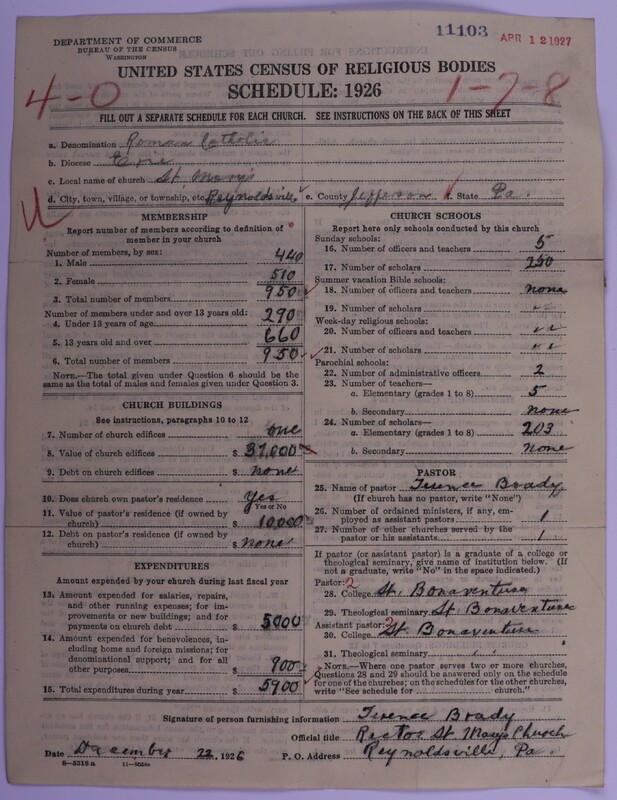 DEPARTMENT OF COMMERCE
BUREAU OF THE CENSUS
WASHINGTON
11103
APR 12 1927
UNITED STATES CENSUS OF RELIGIOUS BODIES
SCHEDULE: 1926
4-0
1-7-8
FILL OUT A SEPARATE SCHEDULE FOR EACH CHURCH. SEE INSTRUCTIONS ON THE BACK OF THIS SHEET
a. Denomination Roman Catholic
b. Diocese Erie
c. Local name of church St. Mary's
d. City, town, village, or township, etc. Reynoldsville e. County Jefferson f. State Pa.
MEMBERSHIP
Report number of members according to definition of
member in your church
Number of members, by sex:
1. Male 440
2. Female 510
3. Total number of members 950
Number of members under and over 13 years old:
4. Under 13 years of age 290
5. 13 years old and over 660
6. Total number of members 950
NOTE.—The total given under Question 6 should be the
same as the total of males and females given under Question 3.
CHURCH BUILDINGS
See instructions, paragraphs 10 to 12
7. Number of church edifices one
8. Value of church edifices $ 37,000
9. Debt on church edifices $ none
10. Does church own pastor's residence yes
Yes or No
11. Value of pastor's residence (if owned by
church) $ 10,000
12. Debt on pastor's residence (if owned by
church) $ none
EXPENDITURES
Amount expended by your church during last fiscal year
13. Amount expended for salaries, repairs,
and other running expenses; for im-
provements or new buildings; and for
payments on church debt $ 5000
14. Amount expended for benevolences, in-
cluding home and foreign missions; for
denominational support; and for all
other purposes $ 900
15. Total expenditures during year $ 5900
CHURCH SCHOOLS
Report here only schools conducted by this church
Sunday schools:
16. Number of officers and teachers 5
17. Number of scholars 250
Summer vacation Bible schools:
18. Number of officers and teachers none
19. Number of scholars "
Week-day religious schools:
20. Number of officers and teachers "
21. Number of scholars "
Parochial schools:
22. Number of administrative officers 2
23. Number of teachers—
a. Elementary (grades 1 to 8) 5
b. Secondary none
24. Number of scholars—
a. Elementary (grades 1 to 8) 203
b. Secondary none
PASTOR
25. Name of pastor Terence Brady
(If church has no pastor, write "None")
26. Number of ordained ministers, if any, em-
ployed as assistant pastors 1
27. Number of other churches served by the
pastor or his assistants 1
If pastor (or assistant pastor) is a graduate of a college or
theological seminary, give name of institution below. (If
not a graduate, write "No" in the space indicated.)
Pastor: 2
28. College St. Bonaventure
29. Theological seminary St Bonaventure
Assistant pastor: 2
30. College St. Bonaventure
31. Theological seminary " "
NOTE.—Where one pastor serves two or more churches,
Questions 28 and 29 should be answered only on the schedule
for one of the churches; on the schedules for the other churches,
write "See schedule for church."
Signature of person furnishing information Terence Brady
Official title Rector St Mary's Church
Date December 22, 1926 P. O. Address Reynoldsville, Pa.